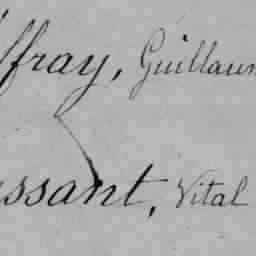 ffray, Guillaum
ssant, Vital